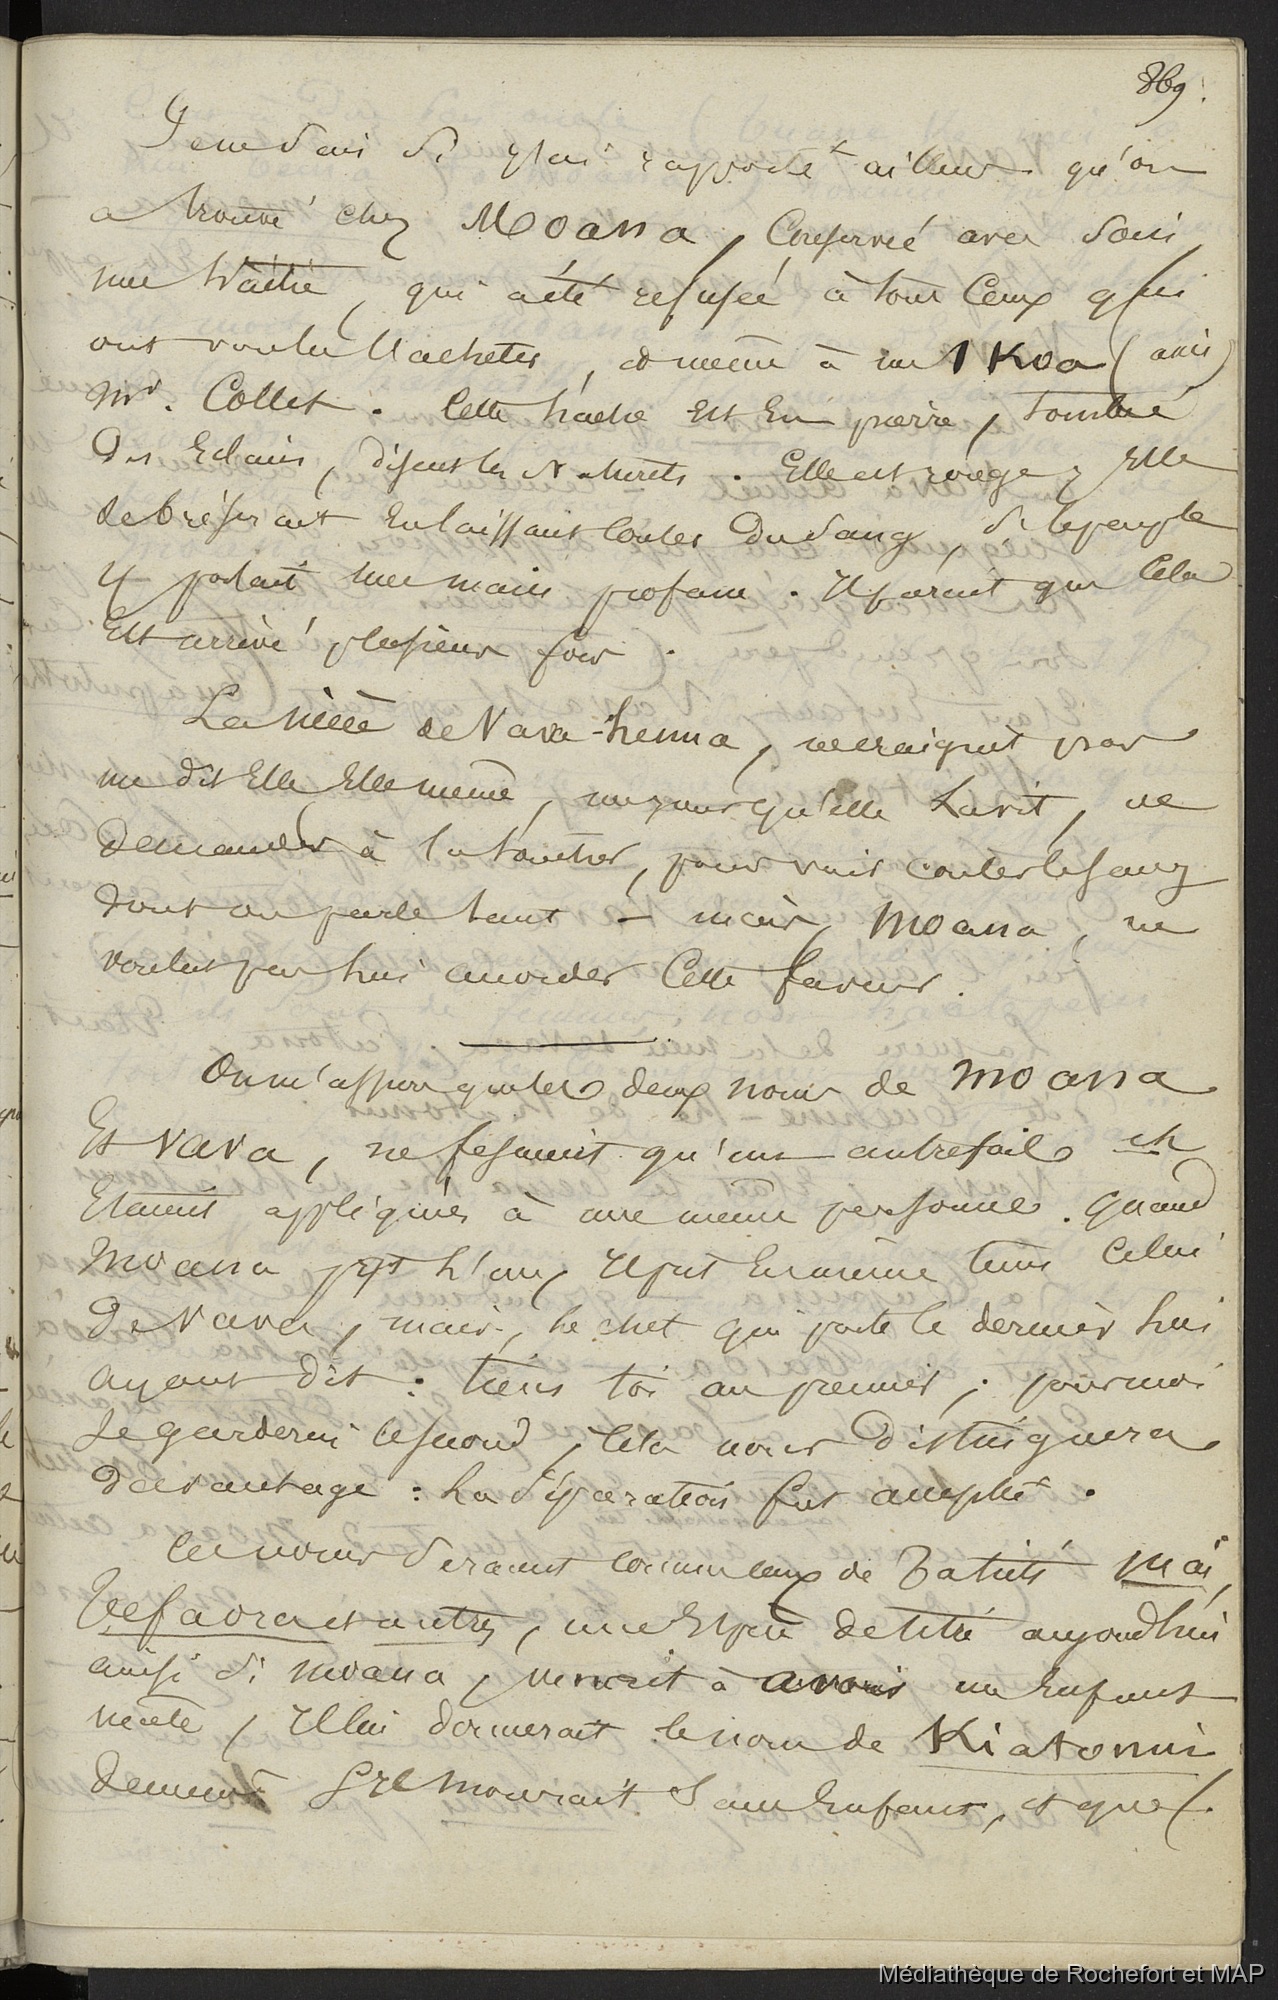 869.
Je ne sais si j'ai rapporté ailleurs qu'on
a trouvé chez Moana, conservé avec soin,
une hâche, qui a été refusée à tous ceux qui
ont voulu l'acheter, et même à un 1 Koa (ami)
Mr. Collet. Cette hache est en pierre, tombée
des Eclairs, disent les Naturels. Elle est rouge, Elle
se briserait en laissant couler du sang, si le peuple
y portait une main profane. Il parait que cela
Est arrivé plusieurs fois.
La nièce de Vava-henua, ne craignit pas
me dit Elle Elle même, un jour qu'elle la vit, de
demander à la toucher, pour voir couler le sang
dont on parle tant - mais, Moana, ne
voulut pas lui accorder cette faveur.
On m'assure que les deux noms de Moana
Et Vava, ne fesaient qu'un autrefois et
Etaient appliqués à une même personne. quand
Moana prit l'un, Il prit En même tems celui
de Vava, mais, le chef qui porte le dernier lui
ayant dit : tiens toi au premier ; pour moi
Je garderai le second, cela nous distinguera
davantage : La séparation fut acceptée.
Ces noms seraient comme ceux de Tatiti Mai,
Tefaora et autres, une Espèce de titre aujourd'hui
ainsi si Moana, venait à avoir un Enfant
mâle, Il lui donnerait le nom de Kiatonui
de même S'il mourait sans Enfant, et que
Médiathèque de Rochefort et MAP